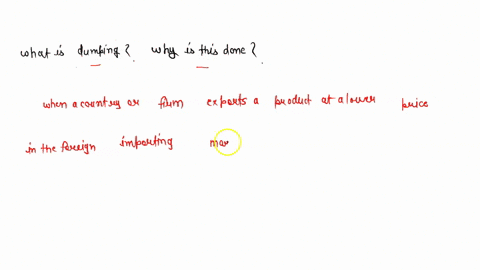 what is dumping? why is this done?
when a country or firm exports a product at a lower price
in the foreign importing mar